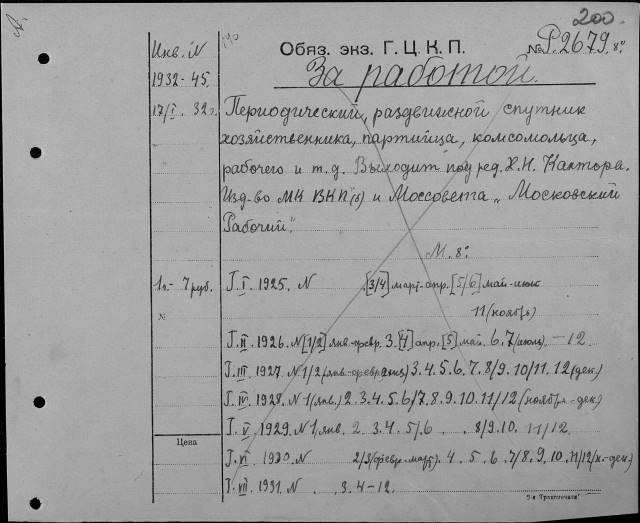 200.
Инв. N
190
Обяз. экз. Г. Ц. К. П.
№ Р.2679. 8º
1932-45.
За работой.
17/I. 32г.
Периодический, раздвижной спутник
хозяйственника, партийца, комсомольца,
рабочего и т.д. Выходит под ред. Х.Н. Кантора.
Изд-во МК ВКП(б) и Моссовета „Московский
Рабочий".
М. 8º
1г.- 7 руб.
Г. I. 1925. N [3/4] март-апр. [5/6] май-июнь
№
11 (ноябрь)
Г. II. 1926. N [1/2] янв-февр. 3. [4] апр. [5] май. 6. 7 (июль) -12
Г. III. 1927. N 1/2 (янв-февр.) 3. 4. 5. 6. 7. 8/9. 10/11. 12 (дек.)
Г. IV. 1928. N 1 (янв.) 2. 3. 4. 5. 6/7. 8. 9. 10. 11/12 (ноябрь-дек)
Г. V. 1929. N 1 янв. 2. 3. 4. 5/6. 8/9. 10. 11/12
Цена
Г. VI. 1930. N 2/3 (февр-март). 4. 5. 6. 7/8. 9. 10. 11/12 (н.-дек.)
Г. VII. 1931. N 3. 4-12.